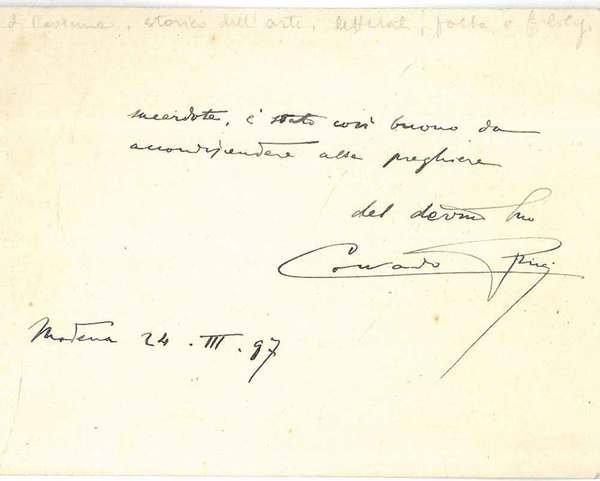 di Ravenna, storico dell'arte, letterat,
sacerdote, è stato così buono da
accondiscendere alla preghiera
del devmo suo
Corrado Ricci
Modena 24 . III . 97